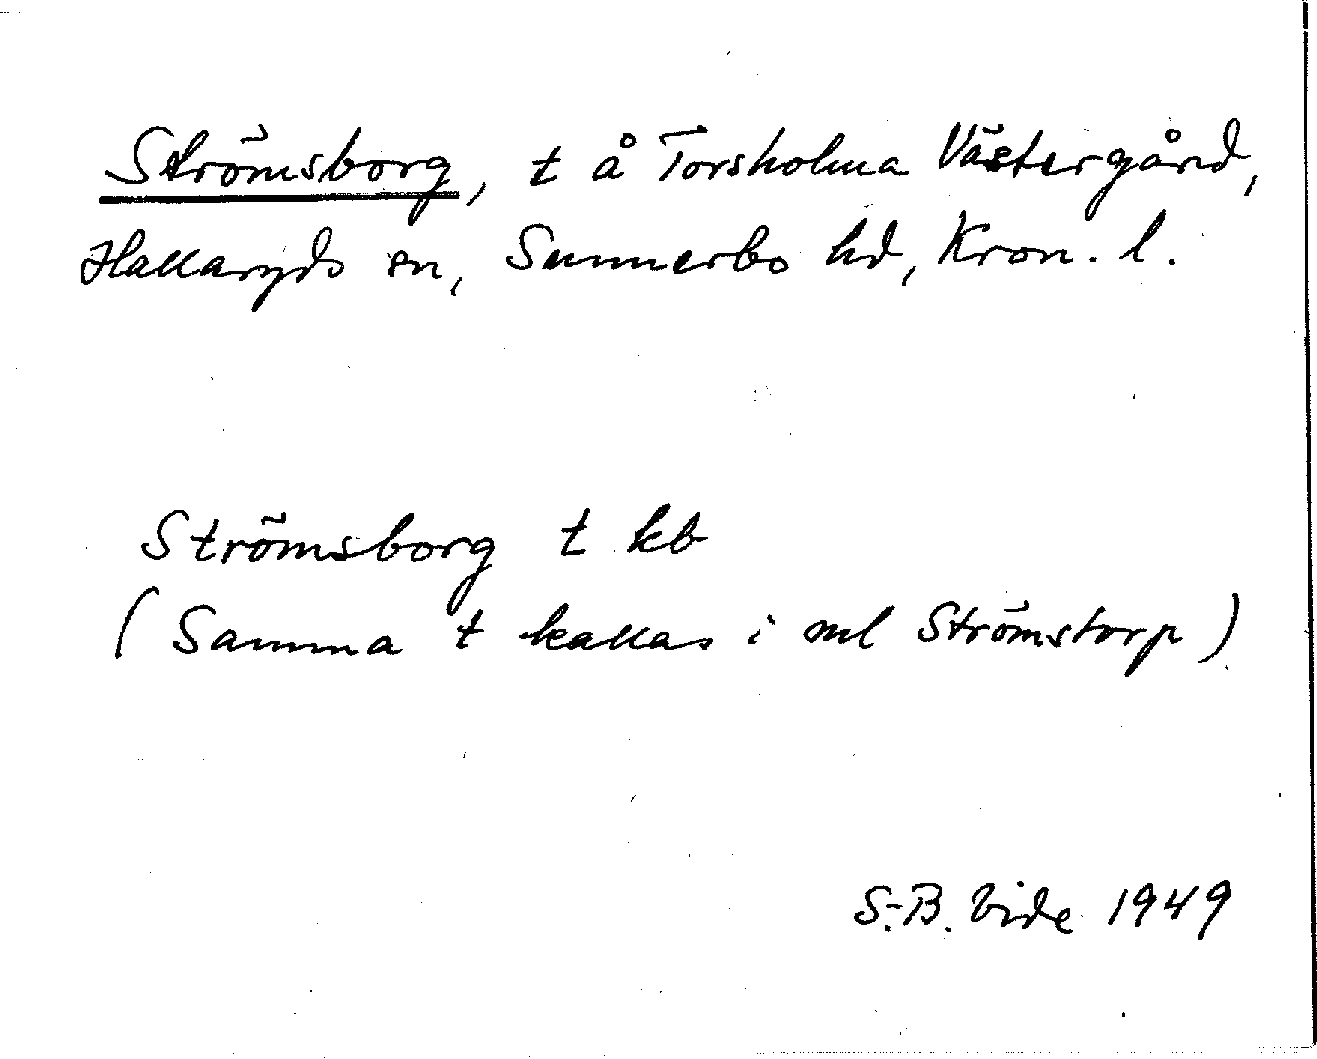 Strömsborg, t å Torsholma Västergård,
Hallaryds sn, Sunnerbo hd, Kron. l.
Strömsborg t kb
(Samma t kallas i ml Strömstorp)
S.-B. Vide 1949